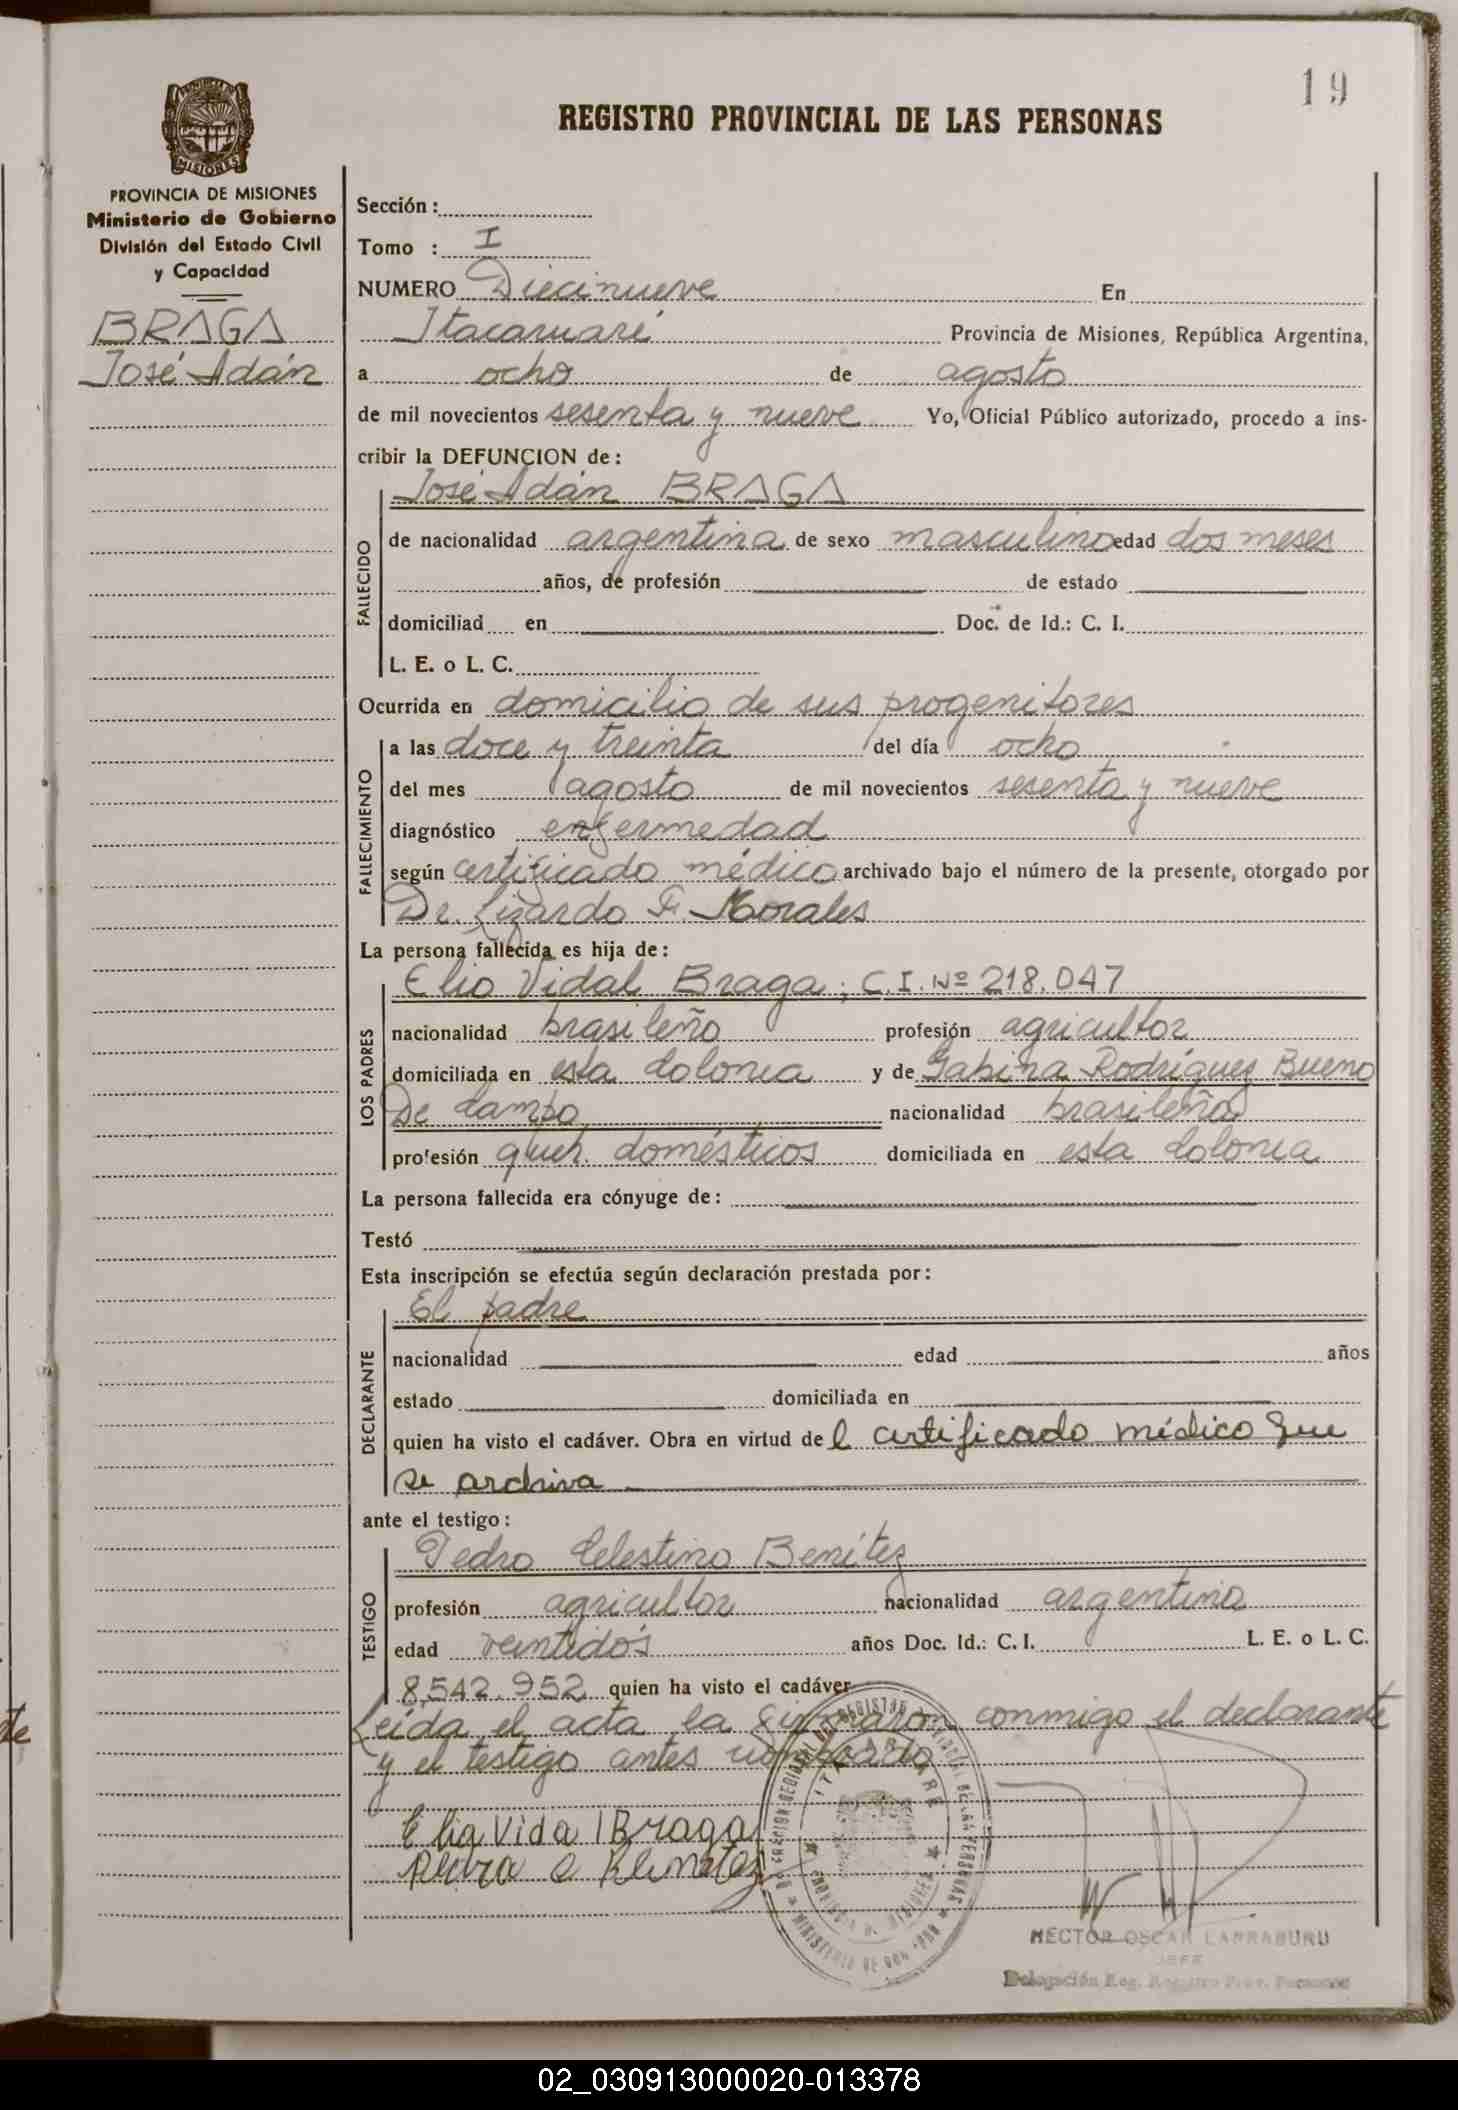 19
REGISTRO PROVINCIAL DE LAS PERSONAS
MISIONES
PROVINCIA DE MISIONES
Ministerio de Gobierno
División del Estado Civil
y Capacidad
BRAGA
José Adán
Sección :
Tomo : I
NUMERO Diecinueve En
Itacaruaré Provincia de Misiones, República Argentina,
a ocho de agosto
de mil novecientos sesenta y nueve Yo, Oficial Público autorizado, procedo a ins-
cribir la DEFUNCION de :
José Adán BRAGA
FALLECIDO
de nacionalidad argentina de sexo masculino edad dos meses
años, de profesión de estado
domiciliad en Doc. de Id.: C. I.
L. E. o L. C.
Ocurrida en domicilio de sus progenitores
FALLECIMIENTO
a las doce y treinta del día ocho
del mes agosto de mil novecientos sesenta y nueve
diagnóstico enfermedad
según certificado médico archivado bajo el número de la presente, otorgado por
Dr. Lizardo F. Morales
La persona fallecida es hija de :
LOS PADRES
Elio Vidal Braga; C.I. Nº 218.047
nacionalidad brasileño profesión agricultor
domiciliada en esta Colonia y de Gabina Rodríguez Bueno
De Campo nacionalidad brasileña
profesión queh. domésticos domiciliada en esta Colonia
La persona fallecida era cónyuge de :
Testó
Esta inscripción se efectúa según declaración prestada por :
DECLARANTE
El padre
nacionalidad edad años
estado domiciliada en
quien ha visto el cadáver. Obra en virtud del certificado médico que
se archiva
ante el testigo :
TESTIGO
Pedro Celestino Benítez
profesión agricultor nacionalidad argentina
edad veintidós años Doc. Id.: C. I. L. E. o L. C.
8.542.952 quien ha visto el cadáver
Leída el acta la firmaron conmigo el declarante
y el testigo antes nombrado
Elio Vidal Braga
Pedro C Benitez
HECTOR OSCAR LARRABURU
JEFE
Delegación Reg. Registro Prov. Personas
02_030913000020-013378